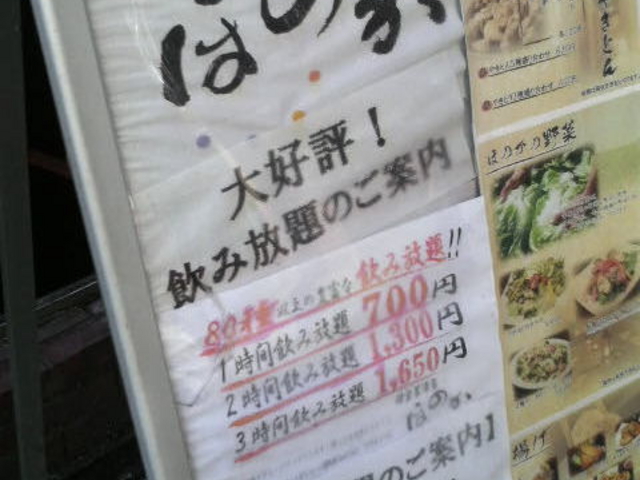 ほのか
大好評！
飲み放題のご案内
80種以上の豊富な飲み放題!!
1時間飲み放題 700円
2時間飲み放題 1,300円
3時間飲み放題 1,650円
ほのか
のご案内】
やきとん
ほのかの野菜
揚げ